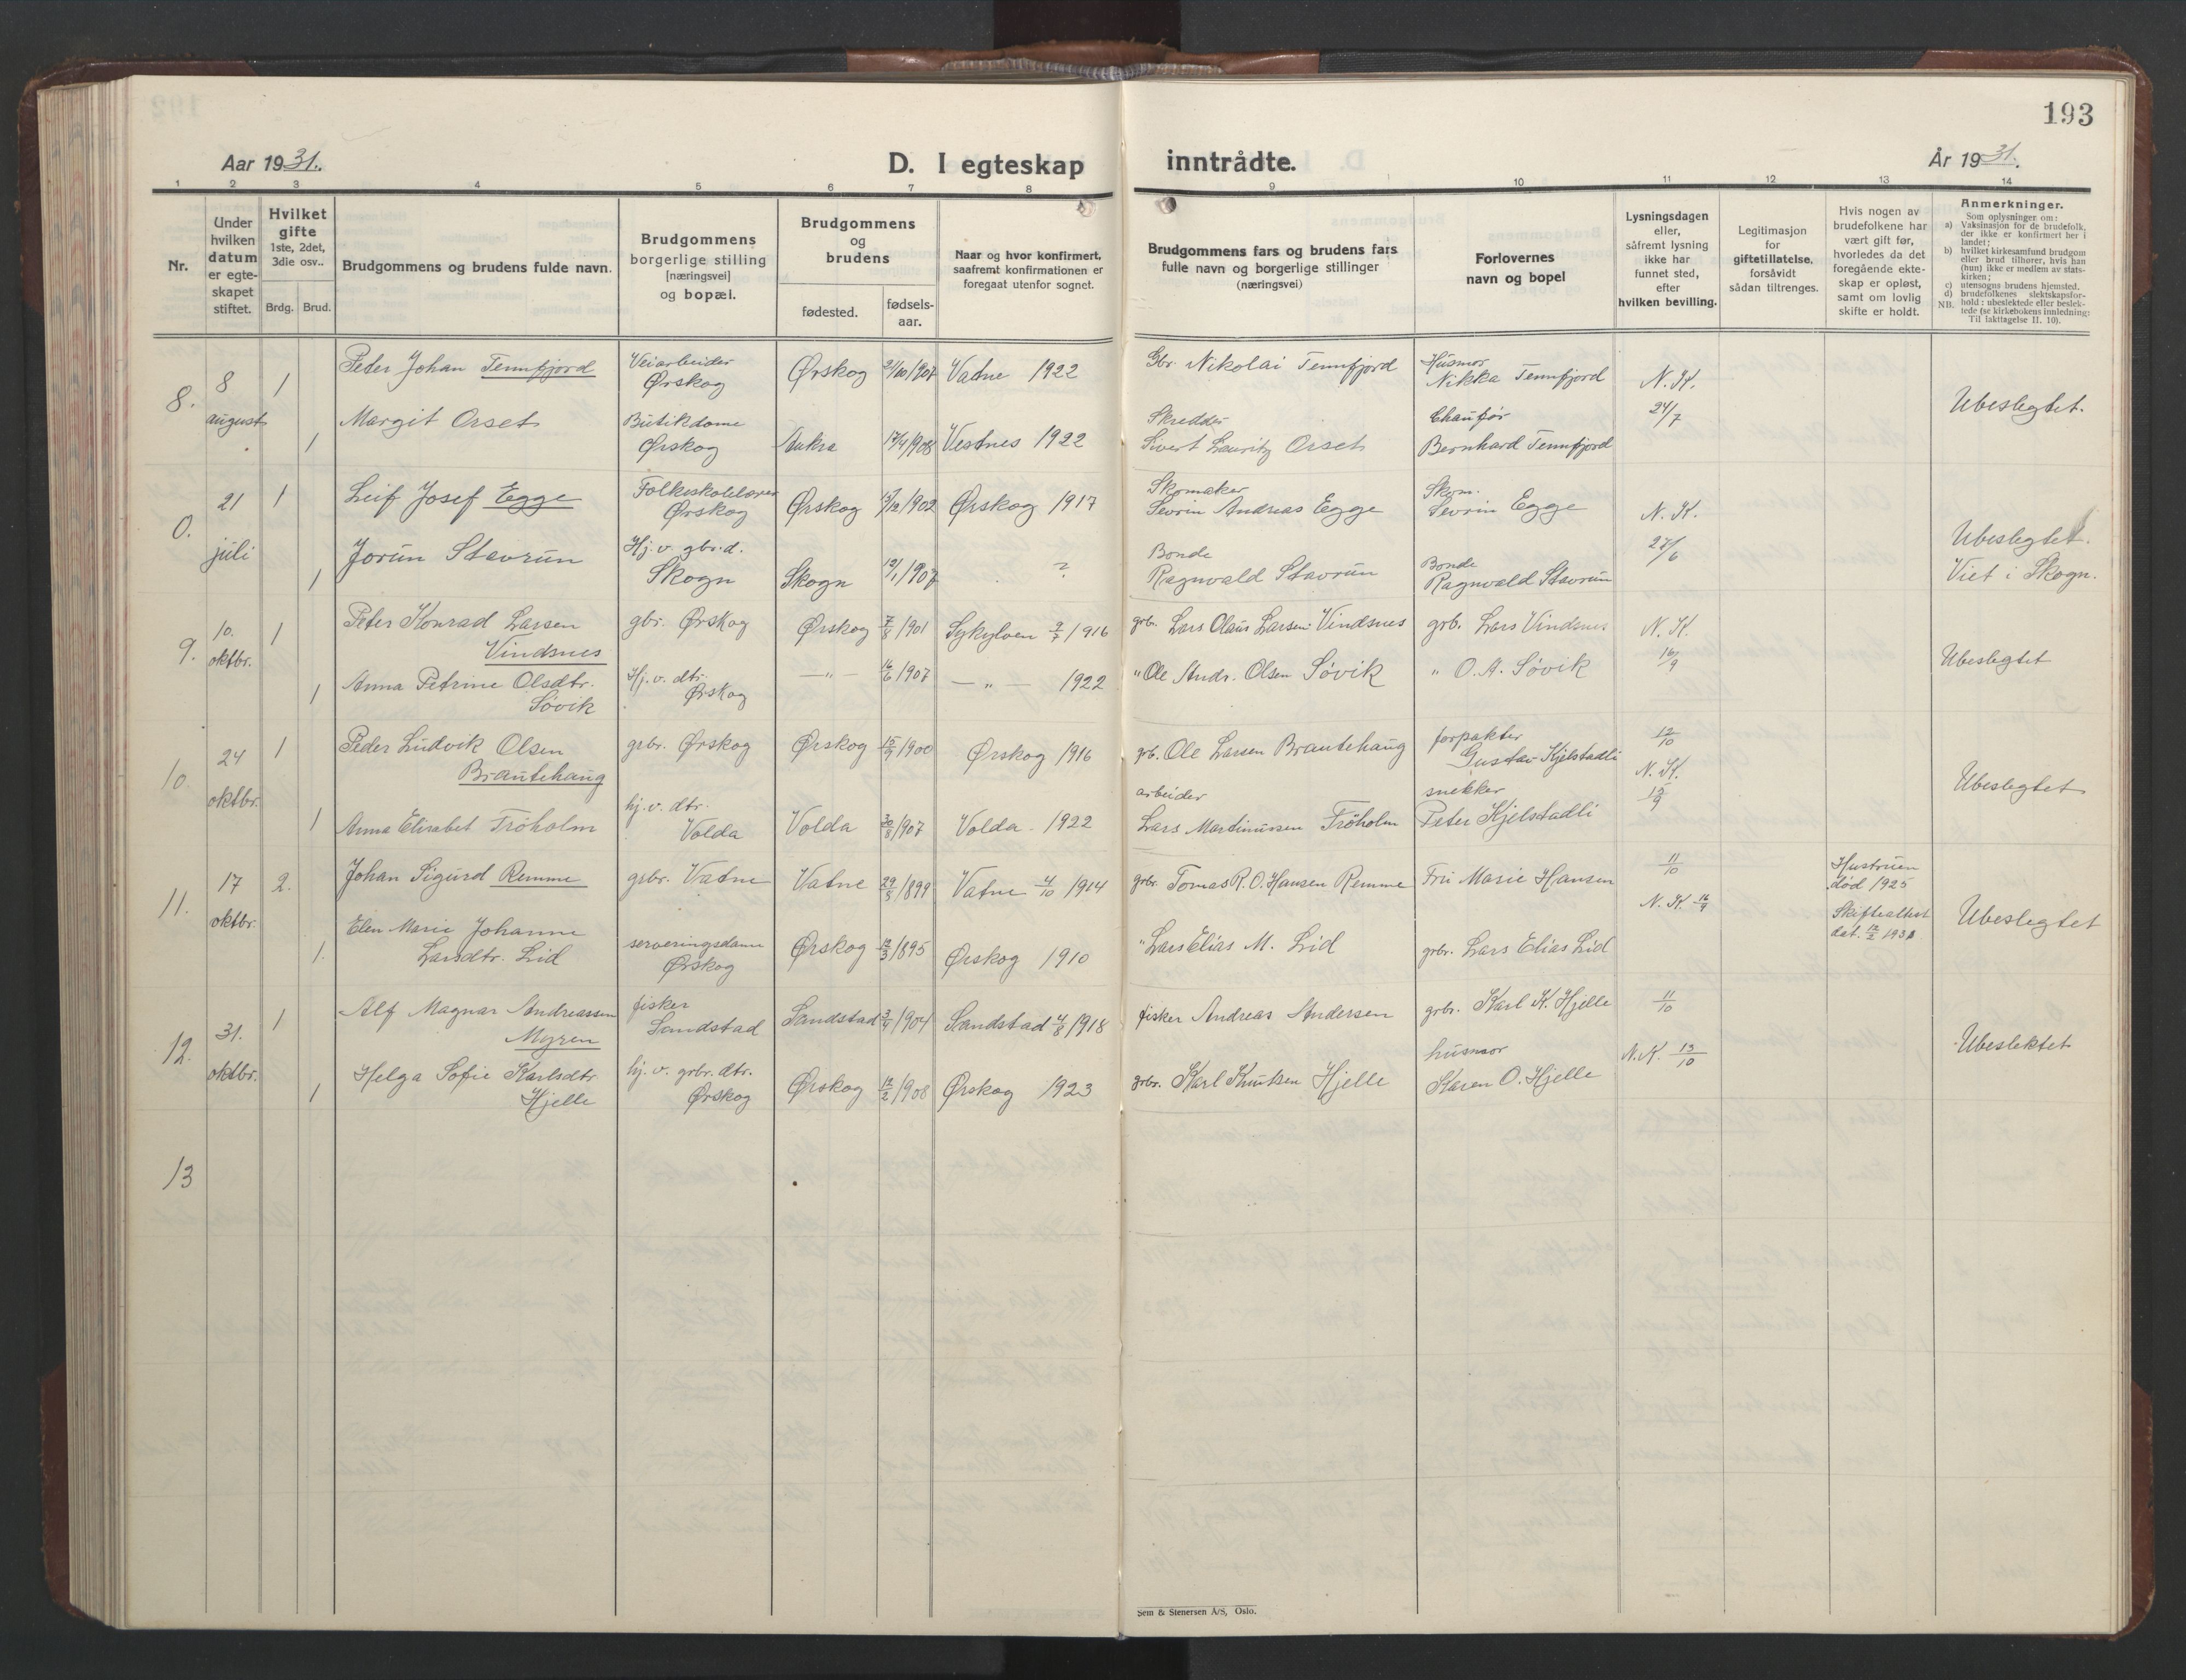 193
Aar 1931.
D. I egteskap
inntrådte.
År 1931.
1 2 3 4 5 6 7 8 9 10 11 12 13 14
Nr.
Under hvilken datum er egte-skapet stiftet.
Hvilket gifte
1ste, 2det, 3die osv..
Brdg. Brud.
Brudgommens og brudens fulde navn.
Brudgommens
borgerlige stilling
[næringsvei]
og bopæl.
Brudgommens
og
brudens
fødested.
fødsels-aar.
Naar og hvor konfirmert,
saafremt konfirmationen er
foregaat utenfor sognet.
Brudgommens fars og brudens fars
fulle navn og borgerlige stillinger
(næringsvei)
Forlovernes
navn og bopel
Lysningsdagen
eller,
såfremt lysning
ikke har
funnet sted,
efter
hvilken bevilling.
Legitimasjon
for
giftetillatelse,
forsåvidt
sådan tiltrenges.
Hvis nogen av
brudefolkene har
vært gift før,
hvorledes da det
foregående ekte-
skap er opløst,
samt om lovlig
skifte er holdt.
Anmerkninger.
Som oplysninger om:
a) Vaksinasjon for de brudefolk,
der ikke er konfirmert her i
landet;
b) hvilket kirkesamfund brudgom
eller brud tilhører, hvis han
(hun) ikke er medlem av stats-
kirken;
c) utensogns brudens hjemsted.
d) brudefolkenes slektskapsfor-
NB. hold: ubeslektede eller beslek-
tede (se kirkebokens innledning:
Til iakttagelse II. 10).
8. 8 august 1 Peter Johan Tennfjord Veiarbeider Ørskog Ørskog 21/10/1907 Vatne 1922 Gbr. Nikolai Tennfjord Husmor Nikka Tennfjord N. K. 24/7 Ubeslegtet.
1 Margit Orset Butikdame Ørskog Aukra 17/4/908 Vestnes 1922 Skredder Sivert Lauritz Orset Chaufør Bernhard Tennfjord
0. 21 juli 1 Leif Josef Egge Folkeskolelærer Ørskog Ørskog /12/1902 Ørskog 1917 Skomaker Sevrin Andreas Egge Skom. Sevrin Egge N. K. 27/6 Ubeslegtet. Viet i Skogn.
1 Jorun Stavrun Hj. v. gbr. d. Skogn Skogn 12/1/907 ? Bonde Ragnvald Stavrun Bonde Ragnvald Stavrun
9. 10. oktbr. 1 Peter Konrad Larsen Vindsnes gbr. Ørskog Ørskog 7/8/901 Sykylven 2/7 1916 grb. Lars Olaus Larsen Vindsnes grb. Lars Vindsnes N. K. 16/9 Ubeslegtet
1 Anna Petrine Olsdtr. Søvik Hj. v. dtr. Ørskog —"— 16/6/907 —"— 1922 " Ole Andr. Olsen Søvik " O. A. Søvik
10. 24 oktbr. 1 Peder Ludvik Olsen Brautehaug grbr. Ørskog Ørskog 15/9/900 Ørskog 1916 grb. Ole Larsen Brautehaug forpakter Gustav Kjelstadli 12/10 N. K. 15/9 Ubeslegtet
1 Anna Elisabet Trøholm hj. v. dtr. Volda Volda 30/8/907 Volda 1922 arbeider Lars Martinussen Trøholm snekker Peter Kjelstadli
11. 17 oktbr. 2. Johan Sigurd Remme grbr. Vatne Vatne 29/5/1899 Vatne 4/10 1914 grbr. Tomas R. O. Hansen Remme Fru Marie Hansen 11/10 N. K. 16/9 Hustruen død 1925 Skifteattest dat. 12/2 1931 Ubeslegtet
1. Elen Marie Johanne Larsdtr. Lid serveringsdame Ørskog Ørskog 12/3/1895 Ørskog 1910 " Lars Elias M. Lid grbr. Lars Elias Lid
12. 31. oktbr. 1 Alf Magnar Andreassen Myren fisker Sandstad Sandstad 3/4/904 Sandstad 4/8 1918 fisker Andreas Andersen grbr. Karl K. Hjelle 11/10 N. K. 13/10 Ubeslektet
1 Helga Sofie Karlsdtr Hjelle hj. v. grbr. dtr. Ørskog Ørskog 12/2/1908 Ørskog 1923 grbr. Karl Knutsen Hjelle husmor Karen O. Hjelle
13
Sem & Stenersen A/S, Oslo.